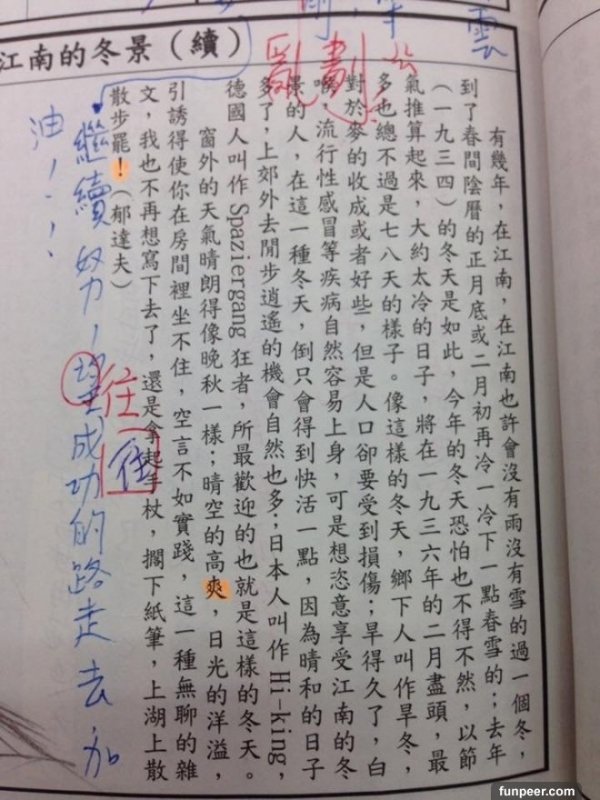 雲
亂劃
江南的冬景（續）
有幾年，在江南，在江南也許會沒有雨沒有雪的過一個冬，
到了春間陰曆的正月底或二月初再冷一冷下一點春雪的；去年
（一九三四）的冬天是如此，今年的冬天恐怕也不得不然，以節
氣推算起來，大約太冷的日子，將在一九三六年的二月盡頭，最
多也總不過是七八天的樣子。像這樣的冬天，鄉下人叫作旱冬，
對於麥的收成或者好些，但是人口卻要受到損傷；旱得久了，白
喉，流行性感冒等疾病自然容易上身，可是想恣意享受江南的冬
景的人，在這一種冬天，倒只會得到快活一點，因為晴和的日子
多了，上郊外去閒步逍遙的機會自然也多；日本人叫作 Hi-king，
德國人叫作 Spaziergang 狂者，所最歡迎的也就是這樣的冬天。
窗外的天氣晴朗得像晚秋一樣；晴空的高爽，日光的洋溢，
引誘得使你在房間裡坐不住，空言不如實踐，這一種無聊的雜
文，我也不再想寫下去了，還是拿起手杖，擱下紙筆，上湖上散
散步罷！（郁達夫）
往
往
繼續努力，成功的路走去加
油！！
funpeer.com